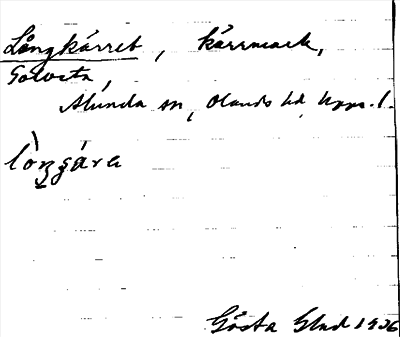 Långkärret, kärrmark,
Golvsta,
Alunda sn, Olands hd, Upps. l.
lòŋgára
Gösta Glad 1936